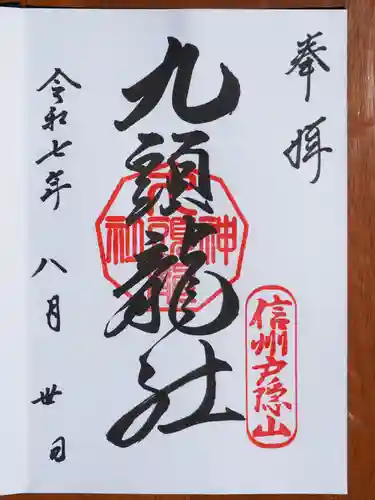 奉拝
九頭龍社
信州戸隠山
令和七年
八月
卅日